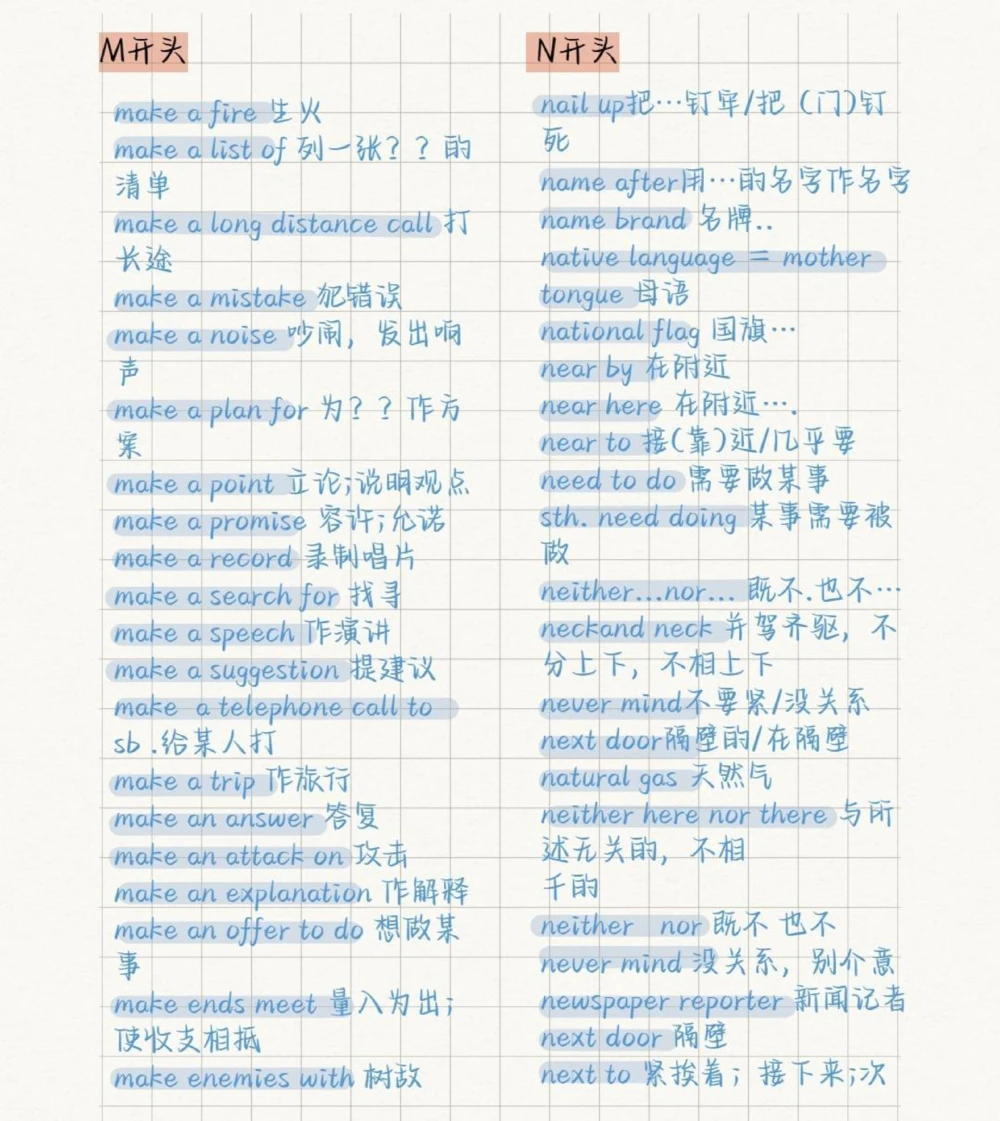 M开头
make a fire 生火
make a list of 列一张？？的
清单
make a long distance call 打
长途
make a mistake 犯错误
make a noise 吵闹，发出响
声
make a plan for 为？？作方
案
make a point 立论;说明观点
make a promise 容许;允诺
make a record 录制唱片
make a search for 找寻
make a speech 作演讲
make a suggestion 提建议
make a telephone call to
sb .给某人打
make a trip 作旅行
make an answer 答复
make an attack on 攻击
make an explanation 作解释
make an offer to do 想做某
事
make ends meet 量入为出；
使收支相抵
make enemies with 树敌
N开头
nail up把…钉牢/把（门)钉
死
name after用…的名字作名字
name brand 名牌..
native language = mother
tongue 母语
national flag 国旗…
near by 在附近
near here 在附近….
near to 接(靠)近/几乎要
need to do 需要做某事
sth. need doing 某事需要被
做
neither...nor... 既不.也不…
neckand neck 并驾齐驱，不
分上下，不相上下
never mind不要紧/没关系
next door隔壁的/在隔壁
natural gas 天然气
neither here nor there 与所
述无关的，不相
千的
neither nor 既不 也不
never mind 没关系，别介意
newspaper reporter 新闻记者
next door 隔壁
next to 紧挨着；接下来;次